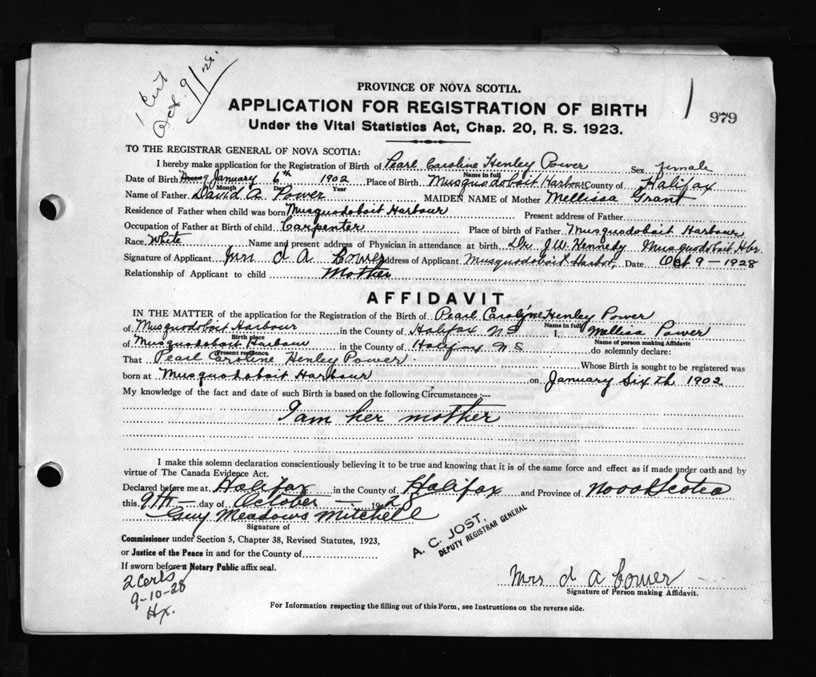 1 Cert
Oct. 9/28.
PROVINCE OF NOVA SCOTIA.
APPLICATION FOR REGISTRATION OF BIRTH
Under the Vital Statistics Act, Chap. 20, R. S. 1923.
979
TO THE REGISTRAR GENERAL OF NOVA SCOTIA:
I hereby make application for the Registration of Birth of Pearl Caroline Henley Power Sex female
Name in full
Date of Birth January 6th 1902 Place of Birth Musquodoboit Harbour County of Halifax
Month Day Year
Name of Father David A Power MAIDEN NAME of Mother Mellissa Grant
Residence of Father when child was born Musquodoboit Harbour Present address of Father
Occupation of Father at Birth of child Carpenter Place of birth of Father Musquodoboit Harbour
Race White Name and present address of Physician in attendance at birth Dr J.W. Kennedy Musquodoboit Hbr.
Signature of Applicant Mrs d A Power Address of Applicant Musquodoboit Harbor, Date Oct 9-1928
Relationship of Applicant to child Mother
AFFIDAVIT
IN THE MATTER of the application for the Registration of the Birth of Pearl Carolyne Henley Power
Name in full
of Musquodoboit Harbour in the County of Halifax N S I, Mellisa Power
Birth place Name of person making Affidavit
of Musquodoboit Harbour in the County of Halifax N.S do solemnly declare:
Present residence
That Pearl Caroline Henley Power. Whose Birth is sought to be registered was
born at Musquodoboit Harbour on January Sixth 1902
My knowledge of the fact and date of such Birth is based on the following Circumstances:—
I am her mother
I make this solemn declaration conscientiously believing it to be true and knowing that it is of the same force and effect as if made under oath and by
virtue of The Canada Evidence Act.
Declared before me at Halifax in the County of Halifax and Province of Nova Scotia
this 9th day of October
Guy Meadows Mitchell
Signature of
Commissioner under Section 5, Chapter 38, Revised Statutes, 1923,
or Justice of the Peace in and for the County of
If sworn before a Notary Public affix seal.
A. C. JOST,
DEPUTY REGISTRAR GENERAL
2 Certs
9-10-28
Hx.
Mrs d A Power
Signature of Person making Affidavit.
For Information respecting the filling out of this Form, see Instructions on the reverse side.